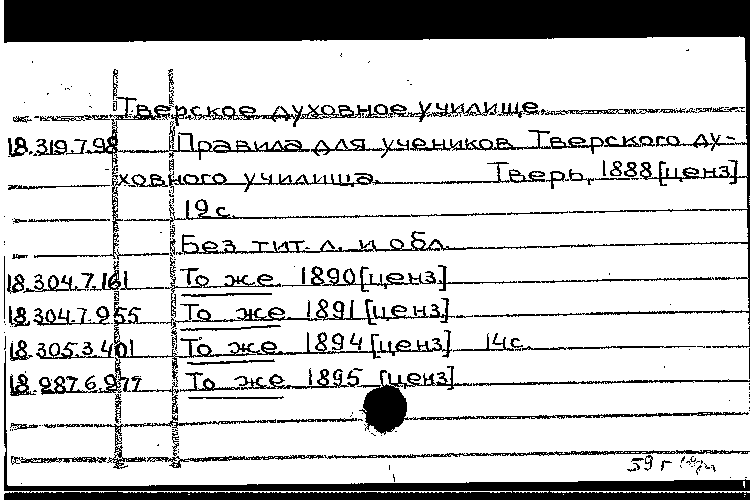 Тверское духовное училище.
18.319.7.98 Правила для учеников Тверского ду-
ховного училища. Тверь, 1888 [ценз]
19 с.
Без тит. л. и обл.
18.304.7.161 То же. 1890 [ценз]
18.304.7.955 То же. 1891 [ценз]
18.305.3.401 То же. 1894 [ценз] 14 с.
18.287.6.977 То же. 1895 [ценз]
59 г